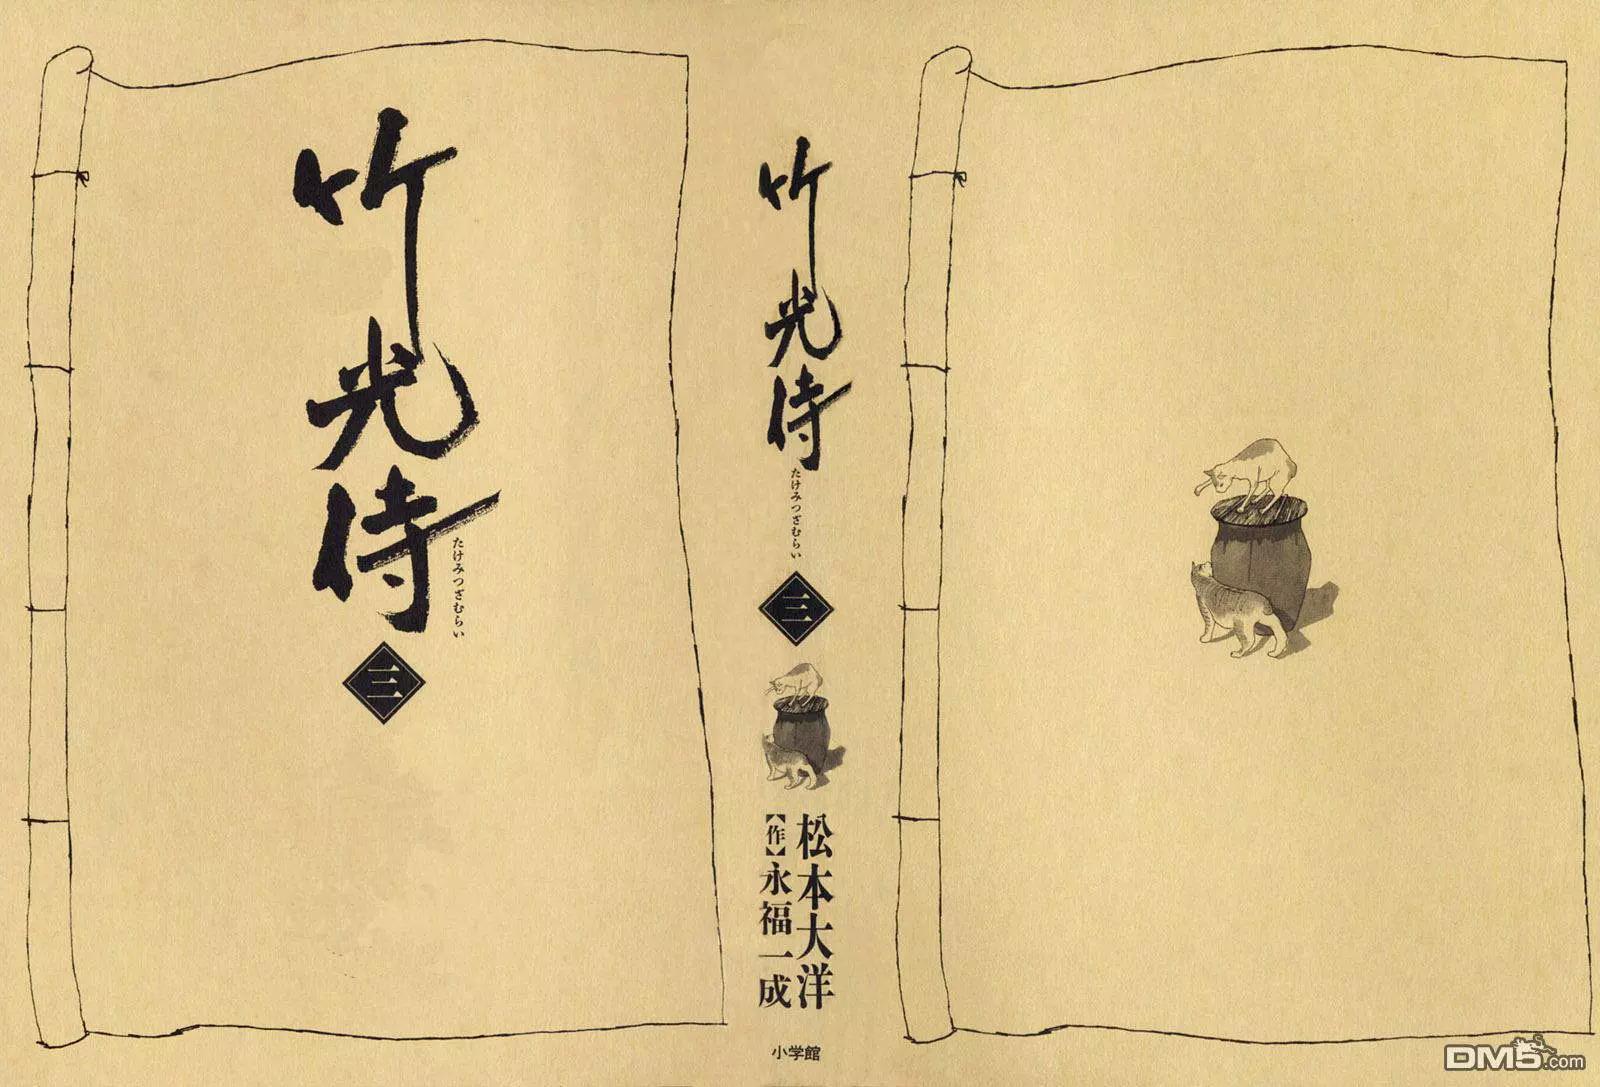 竹光侍
たけみつざむらい
三
竹光侍
たけみつざむらい
三
松本大洋
【作】永福一成
小学館
DM5.com